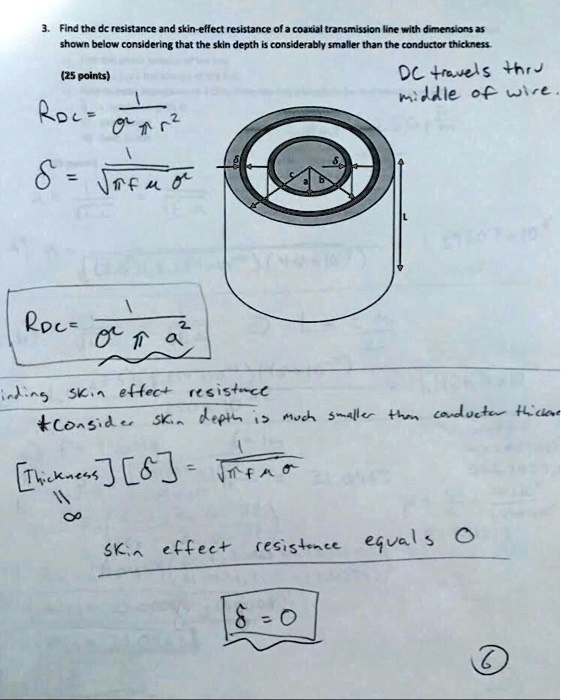 3. Find the dc resistance and skin-effect resistance of a coaxial transmission line with dimensions as
shown below considering that the skin depth is considerably smaller than the conductor thickness.
(25 points)
DC travels thru
middle of wire.
RDC = 1 / σ π r²
δ = 1 / √π f μ σ
δ δ
c a b
L
RDC = 1 / σ π a²
inding skin effect resistance
* Consider skin depth is much smaller than conductor thickne
[Thickness] [δ] = 1 / √π f μ σ
||
∞
skin effect resistance equals 0
δ = 0
6